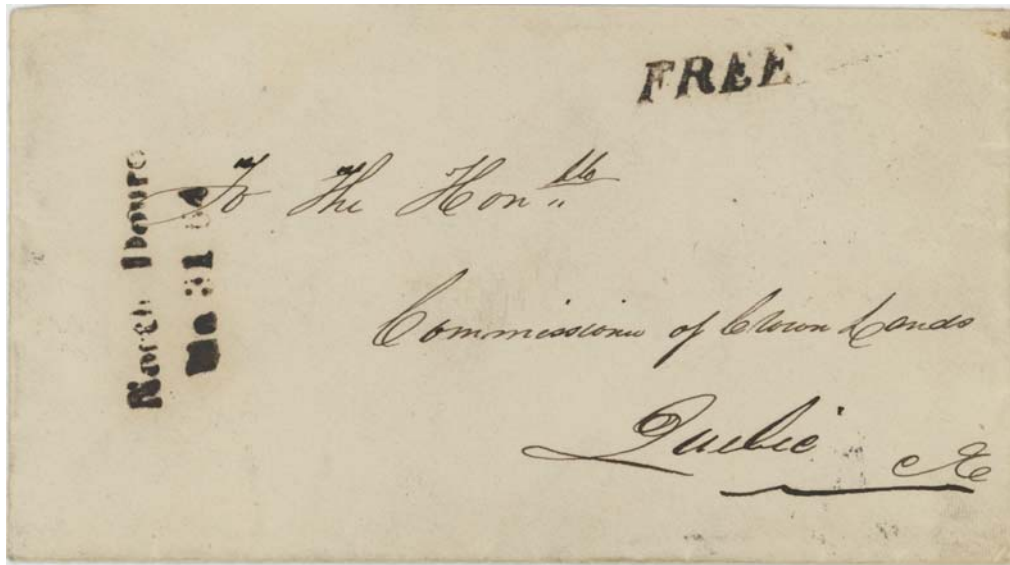 FREE
North Douro
31 64
To The Hon.ble
Commissioner of Crown Lands
Quebec